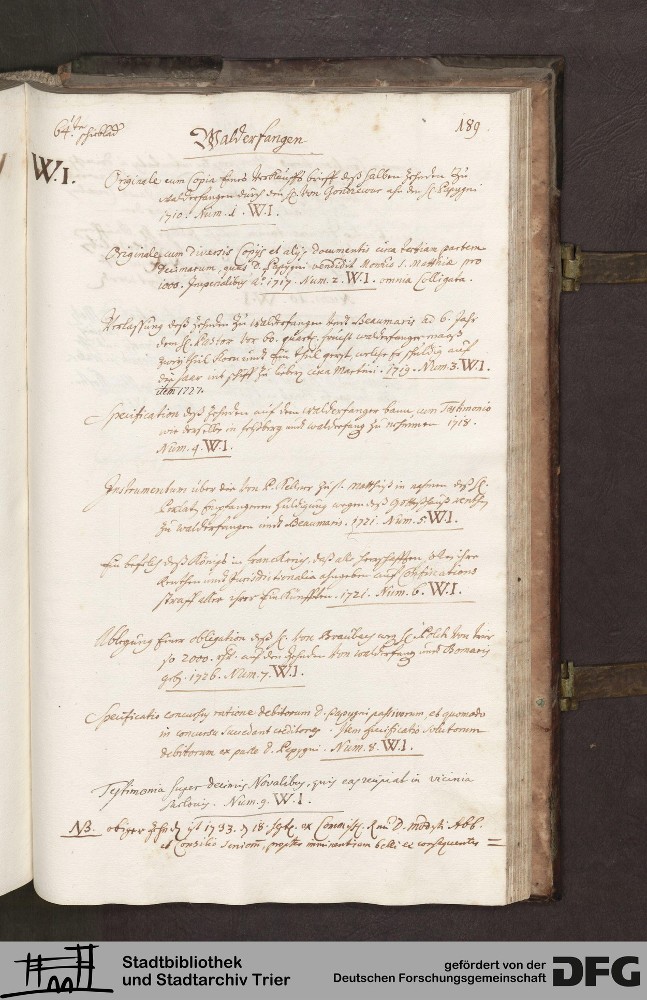 64te
schieblad
189
Walderfangen
W.I.
Originale cum Copia eines Verkauffs brieff deß halben Zehnden Zu
Walderfangen durch den H. von ahn den H. Pepygni
1710. Num. 1. W.I.
Originale cum diversis Copijs et alijs documentis circa tertiam partem
decimarum, quas D. Pepygni vendidit Mon.rio S. Matthiae pro
1000. Imperialibus aõ 1717. Num. 2. W.I. omnia Colligata.
Verlassung deß Zehnden Zu Walderfangen undt Beaumaris ad 6. Jahr
dem H. Pastor vor 60. quart. frucht walderfanger maeß
zweytheil Korn undt Ein theil gerst, welche Er schuldig auf
Zu liebern circa Martini. 1719. Num. 3. W.I.
Item 1727.
Specification deß Zehnden auf dem Walderfanger bann, cum Testimonio
wie derselbe in und walderfang Zu nehmen 1718.
Num. 4. W.I.
Instrumentum über die von P. Kellner Zu St. Matthiß in nahmen deß H.
Praelat Empfangenen Huldigung wegen deß Gotteßhauß renthen
Zu Walderfangen undt Beaumaris. 1721. Num. 5. W.I.
Ein befelch deß Königs in Franckreich, daß alle herschafften von ihre
Renthen und Jurisdictionalia angeben auf Confiscations
straff aller ihrer Einkünfften. 1721. Num. 6. W.I.
Ablegung Einer obligation deß H. von Braubach von Trier
so 2000. rth. auf den Zehnden von Walderfang undt Bomaris
1726. Num. 7. W.I.
Specificatio concursus ratione debitorum D. Pepygni passivorum, et quomodo
in concursu succedant creditores. Item specificatio solutorum
debitorum ex parte D. Pepygni. Num. 8. W.I.
Testimonia super decimis Novalibus, quis eas recipiat in vicinia
Num. 9. W.I.
NB. obiger Zehnd ist 1733. d. 18. ex Commiss. R.mi D. Modesti Abb.
et Consilio Seniorũ, propter imminentiam belli et consequenter =
Stadtbibliothek
und Stadtarchiv Trier
gefördert von der
Deutschen Forschungsgemeinschaft
DFG